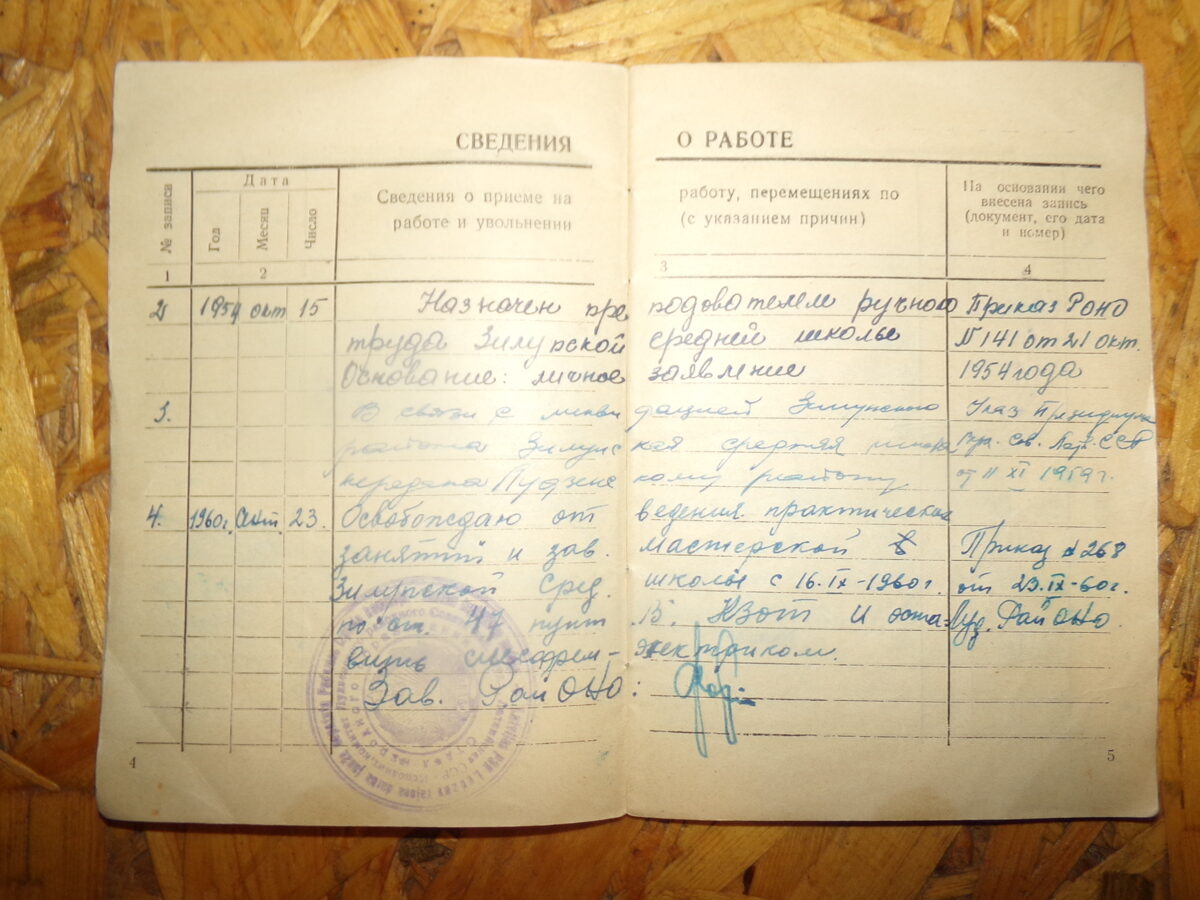 СВЕДЕНИЯ О РАБОТЕ
№ записи
Дата
Год
Месяц
Число
Сведения о приеме на работу, перемещениях по
работе и увольнении (с указанием причин)
На основании чего
внесена запись
(документ, его дата
и номер)
1 2 3 4
2 1954 окт 15 Назначен преподователем ручного Приказ РОНО
труда Зилупской средней школы N 141 от 21 окт.
Основание: личное заявление 1954 года
3. В связи с ликвидацией Зилупского Указ Президиума
района Зилупская средняя школа Вер. Сов. Латв. ССР
передана Лудзенскому району от 11 XI 1959г.
4. 1960г. 23. Освобождаю от ведения практических
занятий и зав. мастерской в Приказ № 268
Зилупской сред. школы с 16.IX-1960г. от 23.IX-60г.
по ст. 47 пункт КЗоТ и оста- Луд. РайОНО
вить слесарем- электриком.
Зав. РайОНО:
4
5